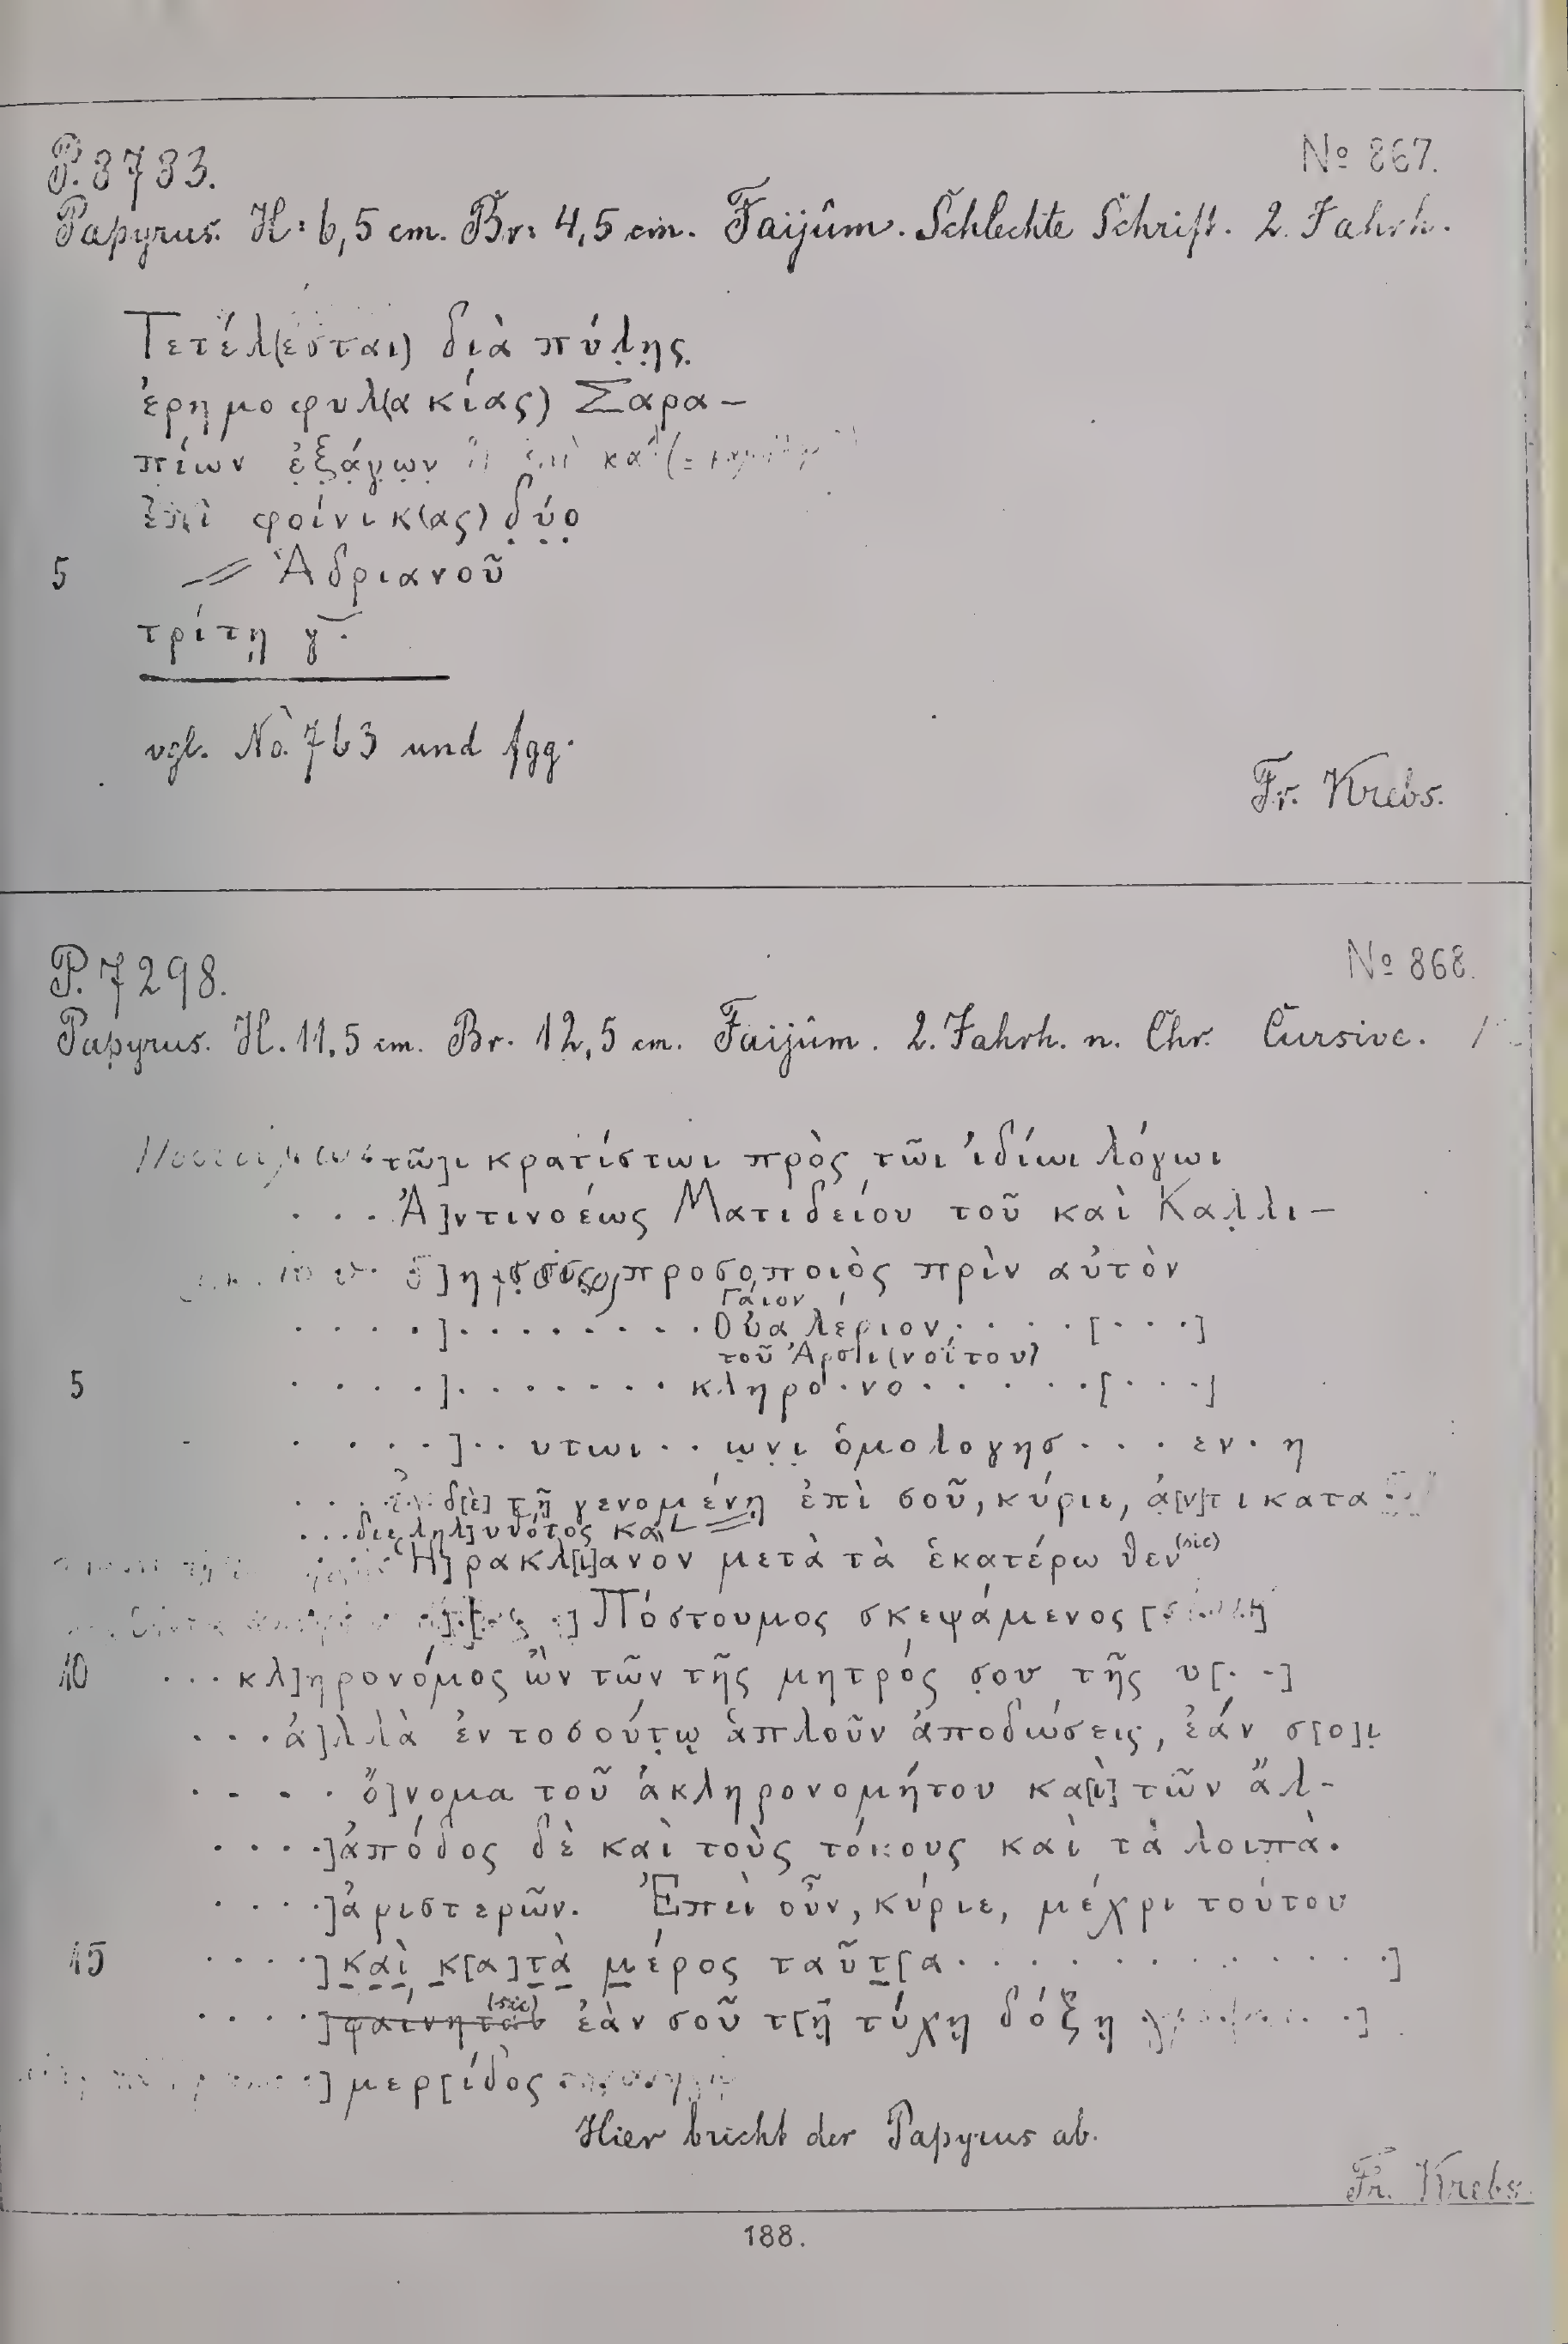 P. 8783.
№ 867.
Papyrus. H: 6,5 cm. Br: 4,5 cm. Faijûm. Schlechte Schrift. 2. Jahrh.
Τετέλ(εσται) διὰ πύλ̣η̣ς̣
ἐρημοφυλ(ακίας) Σαρα-
π̣ίων ἐ̣ξ̣ά̣γ̣ω̣ν̣
ἐπὶ φοίνικ(ας) δ̣ύ̣ο̣
5 Ἁδριανοῦ
τρίτῃ γ̄.
vgl. No. 763 und fgg.
Fr. Krebs.
P. 7298.
№ 868.
Papyrus. H. 11,5 cm. Br. 12,5 cm. Faijûm. 2. Jahrh. n. Chr. Cursive.
τῶ]ι κρατίστωι πρὸς τῶι ἰδίωι λόγωι
. . . Ἀ]ντινοέως Ματιδείου τοῦ καὶ Καλ̣λι-
προσο̣ποιὸς πρὶν αὐτὸν
Γάιον
. . . .] . . . . . . . . Οὐαλέριον . . . . [. . .]
τοῦ Ἀρσι(νοΐτου)
5 . . . .] . . . . . . . κληρο . νο . . . . . . [. . .]
. . . .] . . υτωι . . ω̣ν̣ι̣ ὁμολογησ . . . εν . η
δ[ὲ] τῇ γενομένῃ ἐπὶ σοῦ, κύριε, ἀ[ν]τικατα
. . . διεληλ]υθότος κα
Ἡ]ρακλ[ι]ανὸν μετὰ τὰ ἑκατέρωθεν (sic)
] Πόστουμος σκεψάμενος [
10 . . . κλ]ηρονόμος ὢν τῶν τῆς μητρός σ̣ου τῆς υ[. .]
. . . ἀ]λλὰ ἐν τοσούτ̣ῳ ἁπλοῦν ἀποδώσεις, ἐάν σ[ο]ι̣
. . . . ὄ]νομα τοῦ ἀκληρονομήτου κα[ὶ] τῶν ἄλ-
. . . .]ἀπόδος δὲ καὶ τοὺς τόκους καὶ τὰ λοιπὰ.
. . . .]ἀριστερῶν. Ἐπεὶ οὖν, κύριε, μέχρι τούτου
15 . . . .] καὶ κ[α]τὰ μέρος ταῦτ[α . . . . . . . . . .]
. . . .] φαίνηται (sic) ἐὰν σοῦ τ[ῇ] τύχῃ δόξῃ . .]
] μερ[ίδος
Hier bricht der Papyrus ab.
Fr. Krebs.
188.